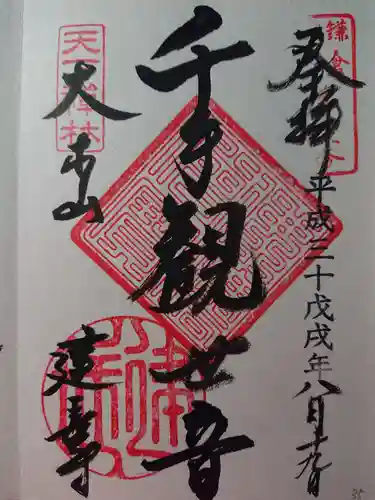 奉拝
平成三十戊戌年八月
千手觀世音
大本山
建長寺
天下禅林
鎌倉
35